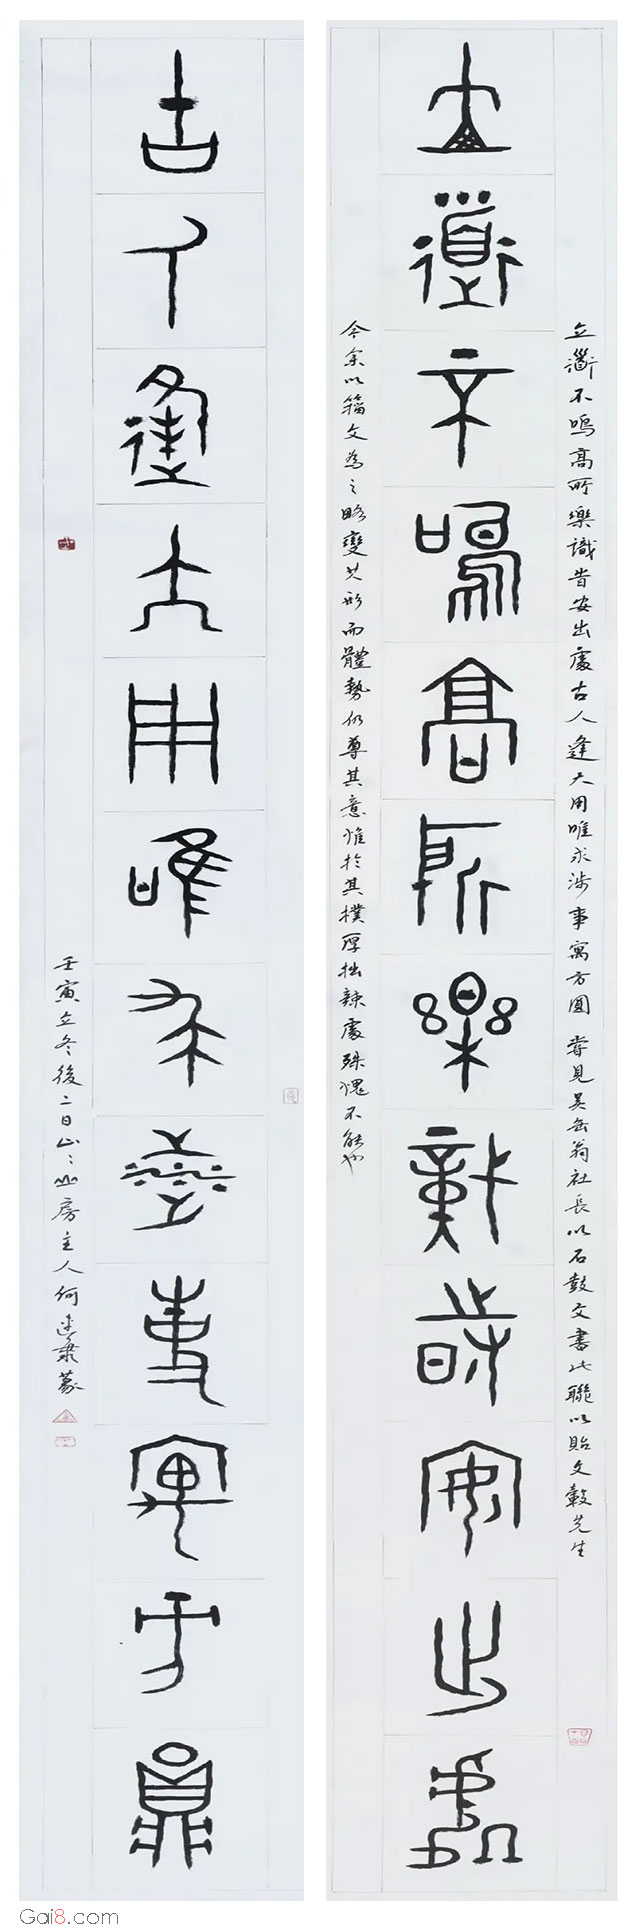 立衟不鳴高所樂識旹安出處古人逢大用唯求涉事寓方圓 嘗見吴缶翁社長以石鼓文書此聯以貽文毂先生
立衟不鳴高所樂識時安出處
今余以籀文為之略變其形而體勢仍尊其意惟於其樸厚拙辣處殊愧不能也
古人逢大用唯求涉事寓方圓
壬寅立冬後二日山〻山房主人何篆
Gai8.com